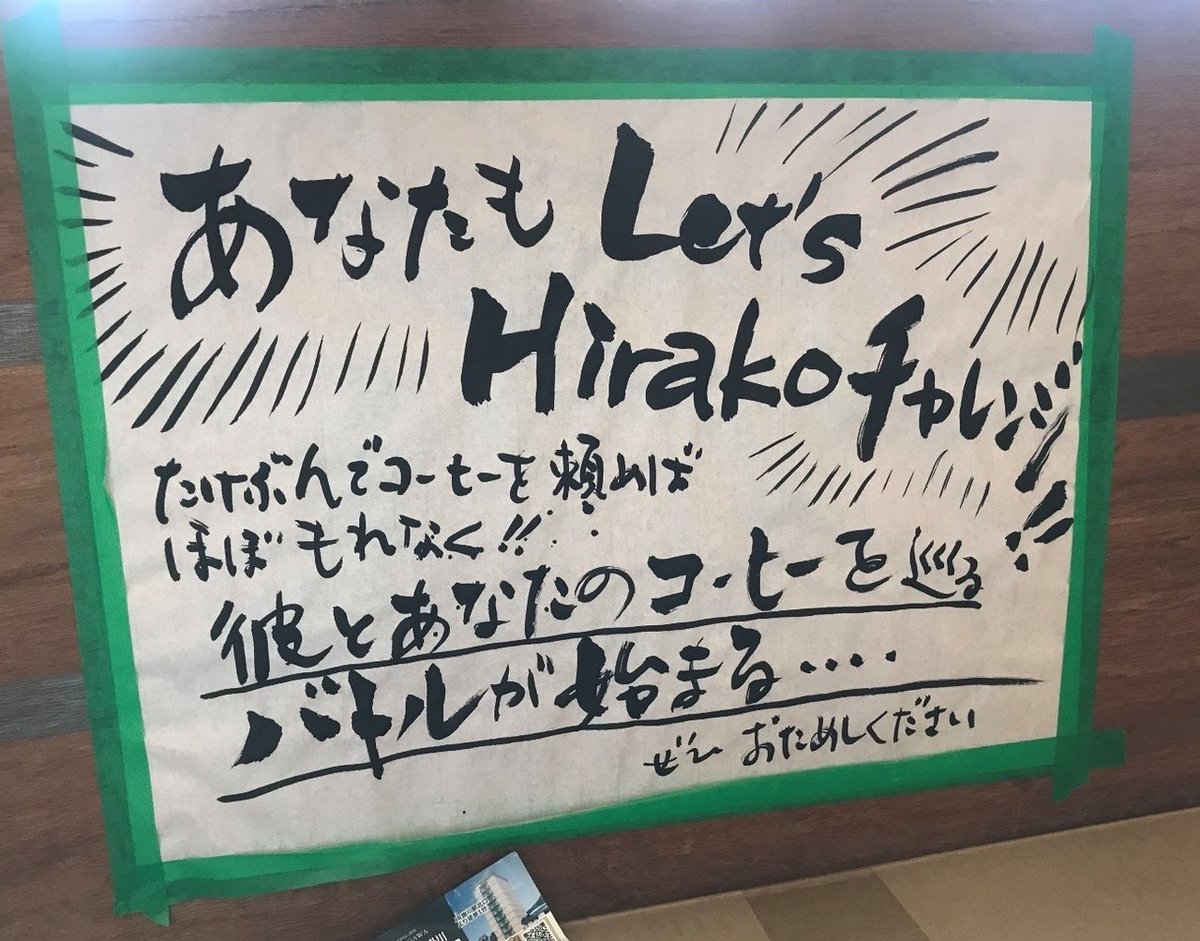 あなたも Let's
Hirakoチャレンジ!!
たけぶんでコーヒーを頼めば
ほぼもれなく!!
彼とあなたのコーヒーを巡る
バトルが始まる‥‥
ぜひ おためしください